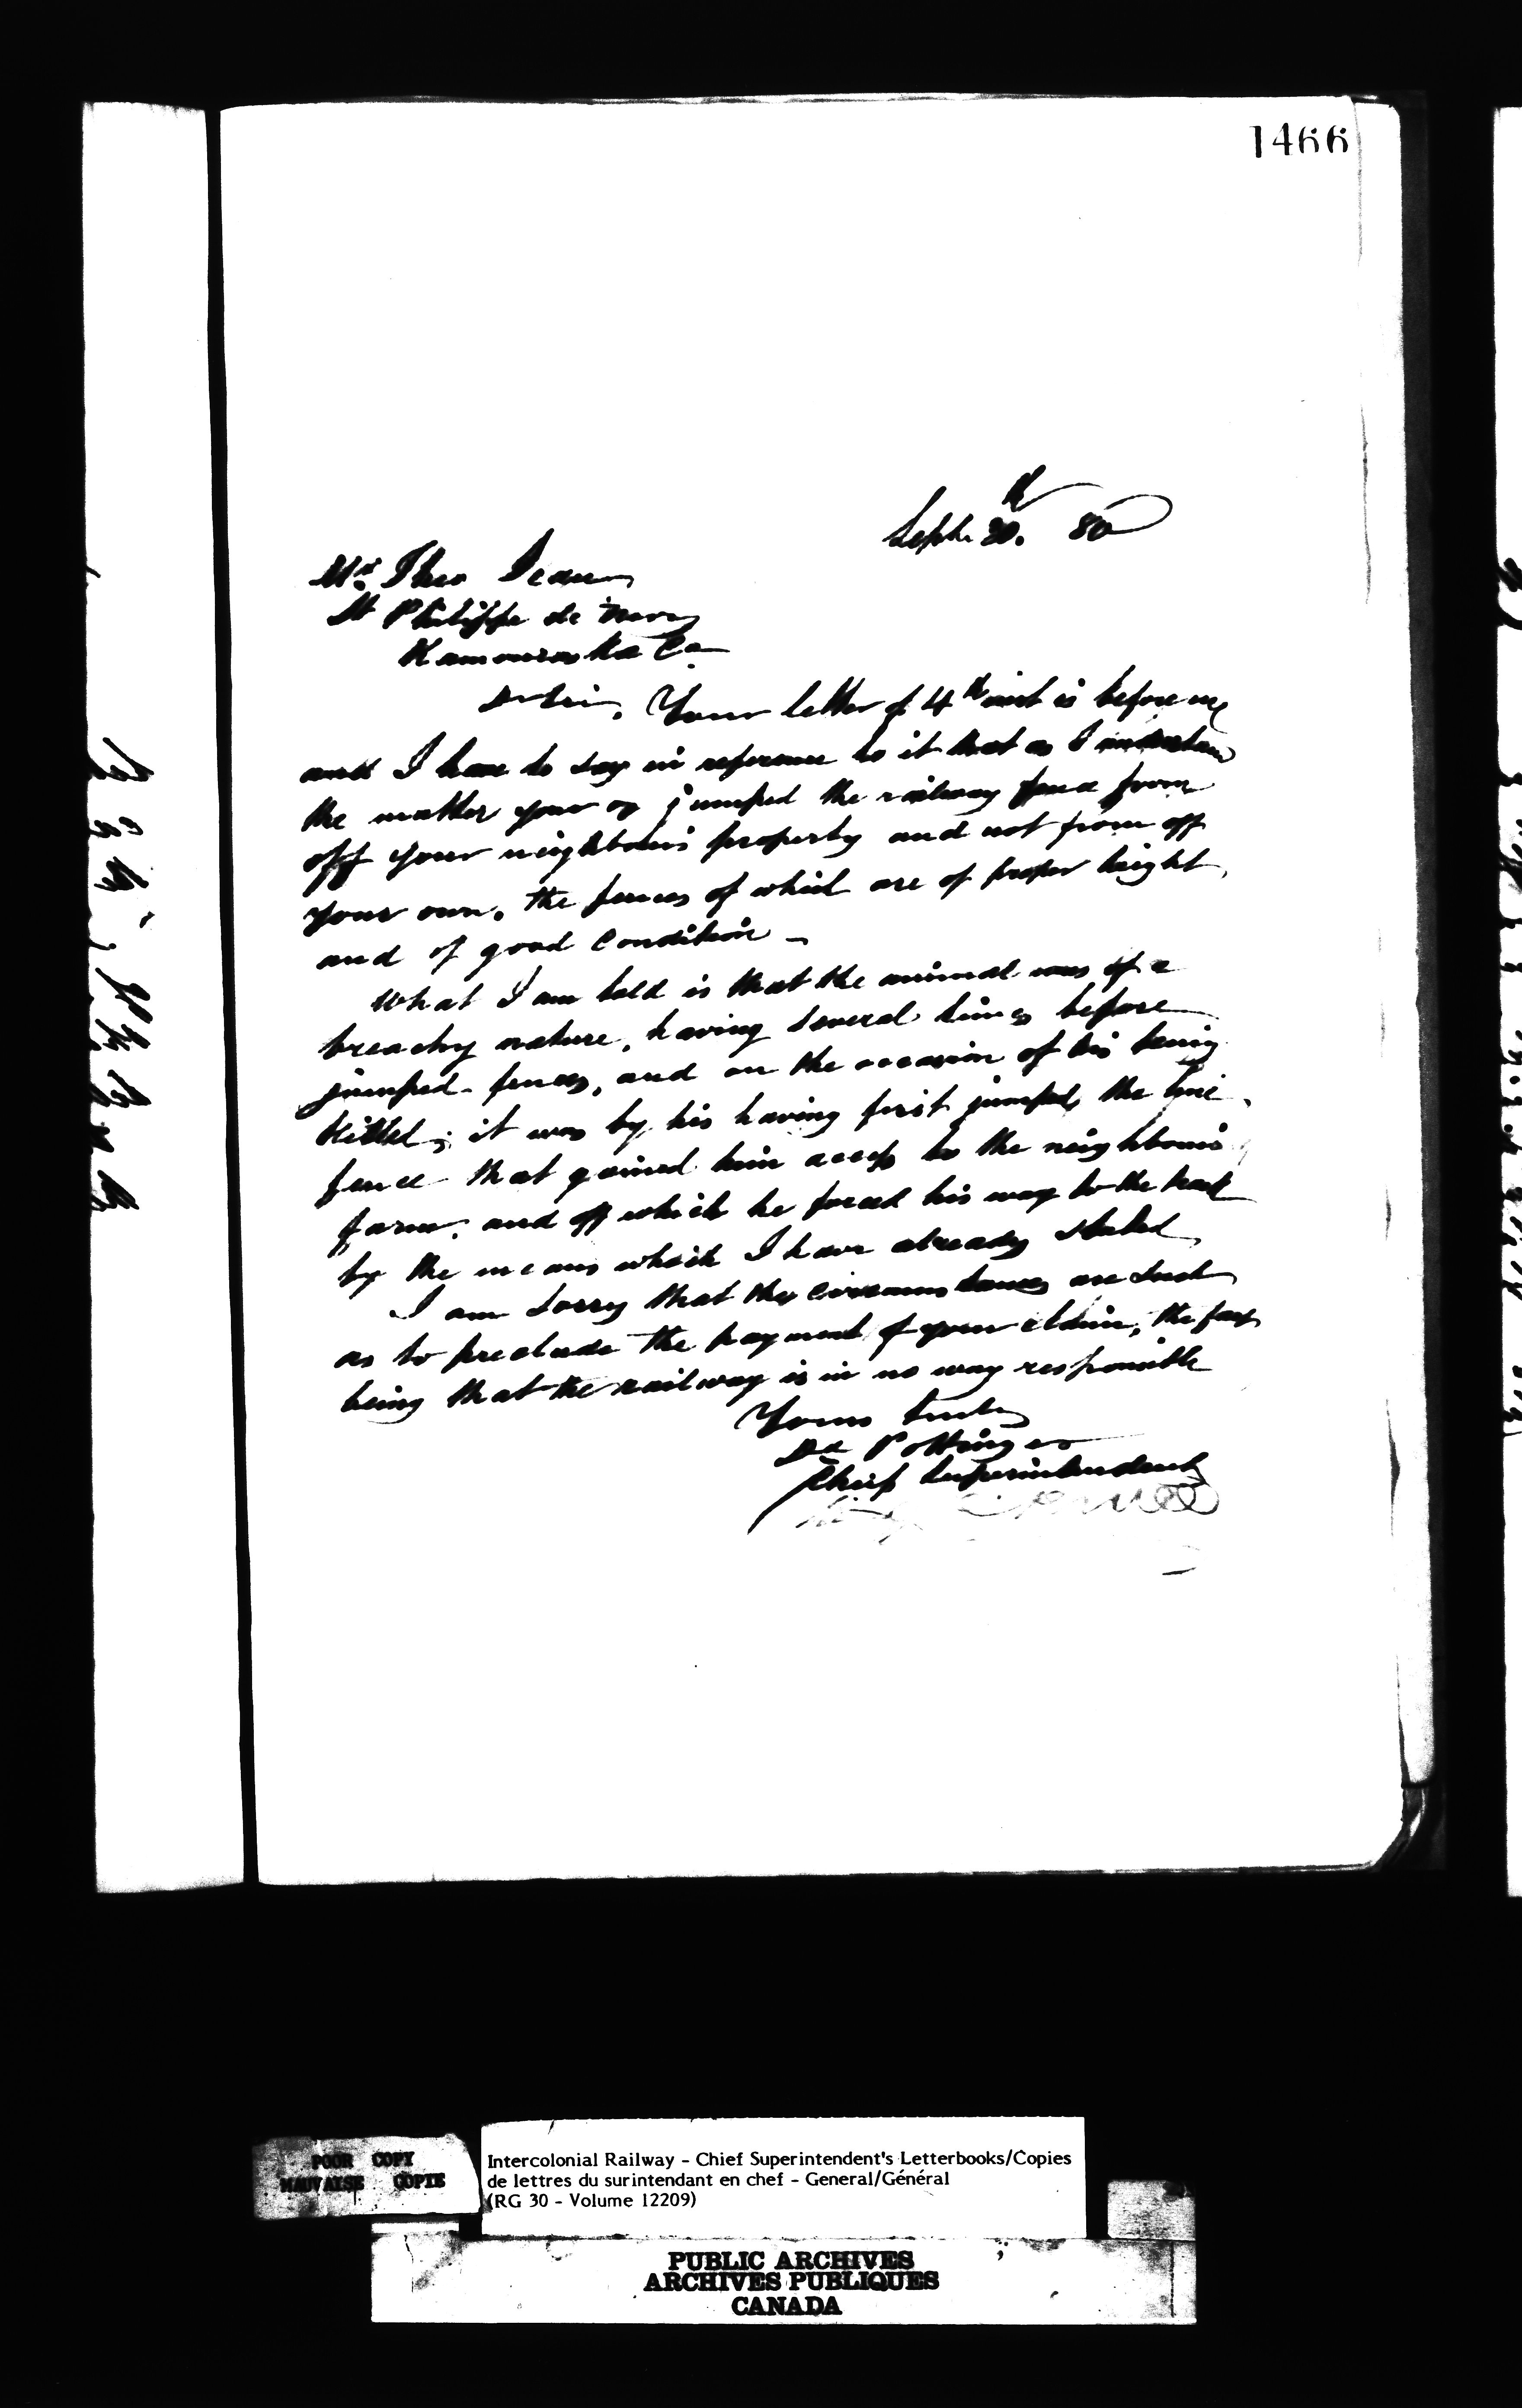 1466
Sept. 30th 80
Mr Theo Jean
St Philippe de Nery
Kamouraska Co
Dr Sir, Your letter of 4th inst is before me
and I have to say in reference to it that as I understand
the matter your ox jumped the railway fence from
off your neighbour's property and not from off
your own, the fences of which are of proper height
and of good condition –
What I am told is that the animal was of a
breachy nature, having several times before
jumped fences, and on the occasion of his being
killed; it was by his having first jumped the line
fence that gained him access to the neighbour's
farm, and off which he forced his way to the track
by the means which I have already stated
I am sorry that the circumstances are such
as to preclude the payment of your claim, the fact
being that the railway is in no way responsible
Yours truly
Pottinger
Chief Superintendent
POOR COPY
MAUVAISE COPIE
Intercolonial Railway - Chief Superintendent's Letterbooks/Copies
de lettres du surintendant en chef - General/Général
(RG 30 - Volume 12209)
PUBLIC ARCHIVES
ARCHIVES PUBLIQUES
CANADA